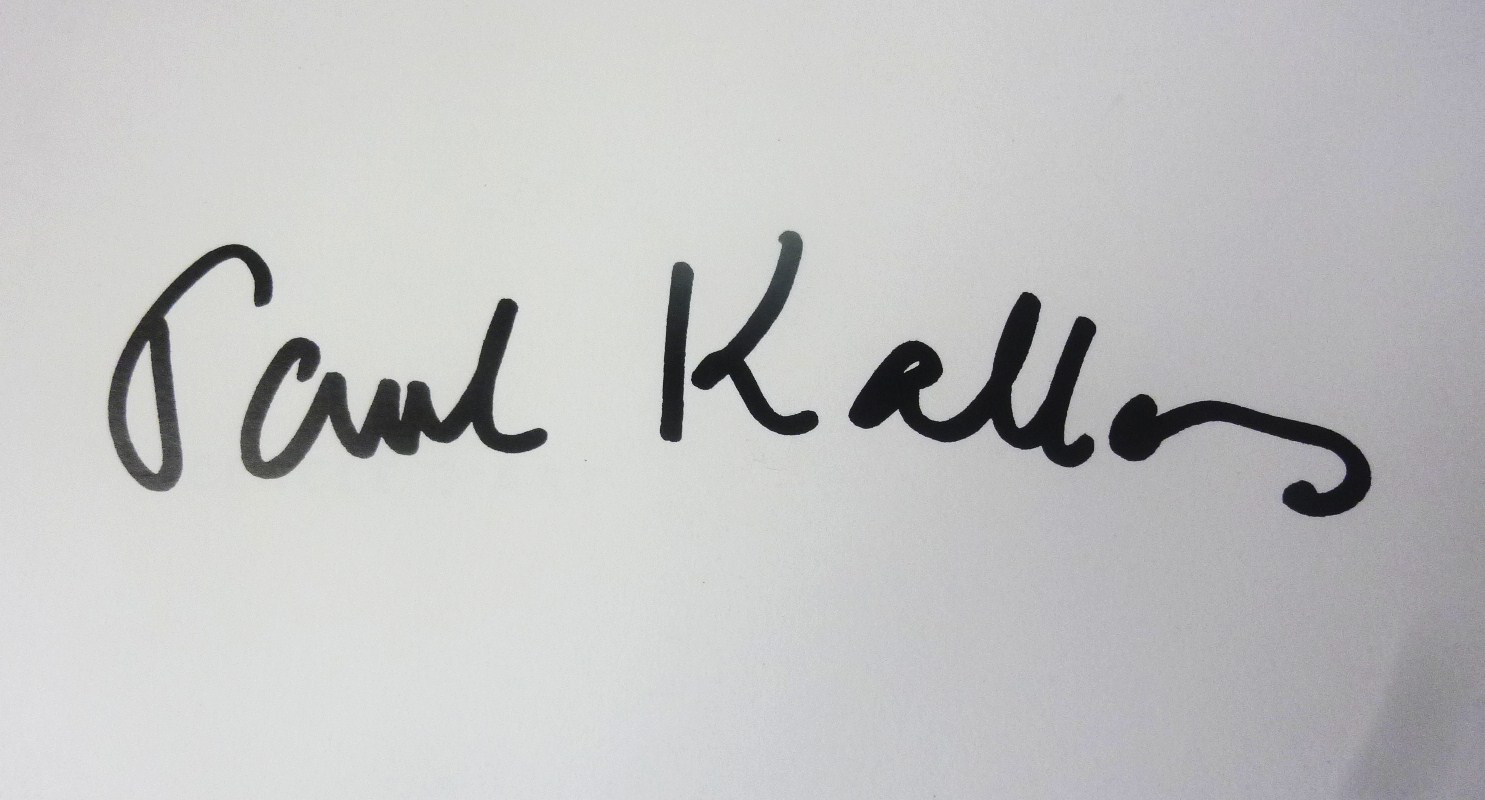 Paul Kallos